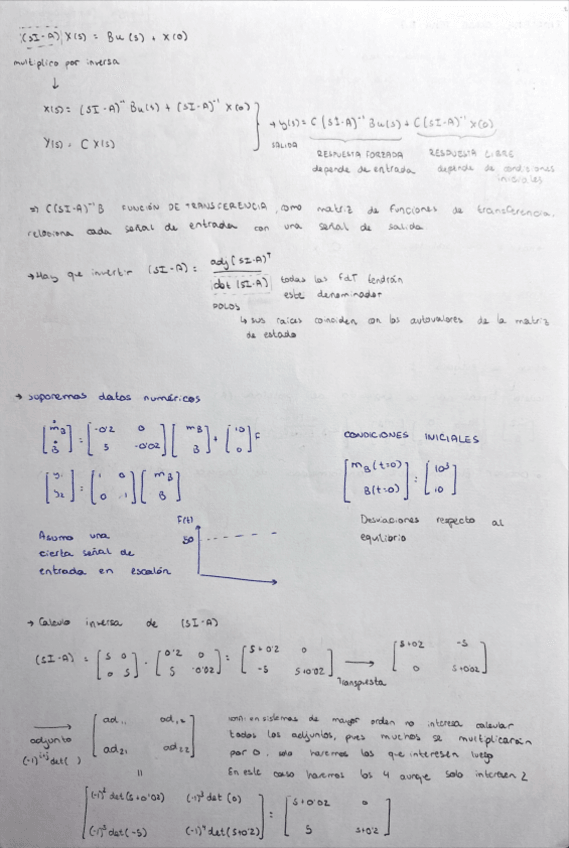 (SI-A) X(s) = Bu(s) + X(0)
multiplico por inversa
↓
X(s) = (SI-A)⁻¹ Bu(s) + (SI-A)⁻¹ X(0)
Y(s) = C X(s)
→ y(s) = C(SI-A)⁻¹ Bu(s) + C(SI-A)⁻¹ X(0)
SALIDA
RESPUESTA FORZADA
depende de entrada
RESPUESTA LIBRE
depende de condiciones
iniciales
C(SI-A)⁻¹B FUNCIÓN DE TRANSFERENCIA, como matriz de funciones de transferencia.
relaciona cada señal de entrada con una señal de salida
→ Hay que invertir (SI-A) = adj(SI-A)ᵀ / det(SI-A)
todas las FdT tendrán
este denominador
POLOS
↳ sus raíces coinciden con los autovalores de la matriz
de estado
→ Suporemos datos numéricos
[ṁB; Ḃ] = [-0'2 0; 5 -0'02] [mB; B] + [10; 0] F
[y₁; y₂] = [1 0; 0 1] [mB; B]
CONDICIONES INICIALES
[mB(t=0); B(t=0)] = [10³; 10]
Desviaciones respecto al
equilibrio
Asumo una
cierta señal de
entrada en escalón
F(t)
50
→ Calculo inversa de (SI-A)
(SI-A) = [S 0; 0 S] - [0'2 0; 5 -0'02] = [S+0'2 0; -5 S+0'02] → [S+0'2 -5; 0 S+0'02]
Transpuesta
adjunto
(-1)ⁱ⁺ʲ det( )
[ad₁₁ ad₁₂; ad₂₁ ad₂₂]
en sistemas de mayor orden no interesa calcular
todos los adjuntos, pues muchos se multiplicarán
por 0. solo haremos los que interesen luego
En este caso haremos los 4 aunque solo interesen 2
[(-1)² det(S+0'02) (-1)³ det(0); (-1)³ det(-5) (-1)⁴ det(S+0'2)] = [S+0'02 0; 5 S+0'2]